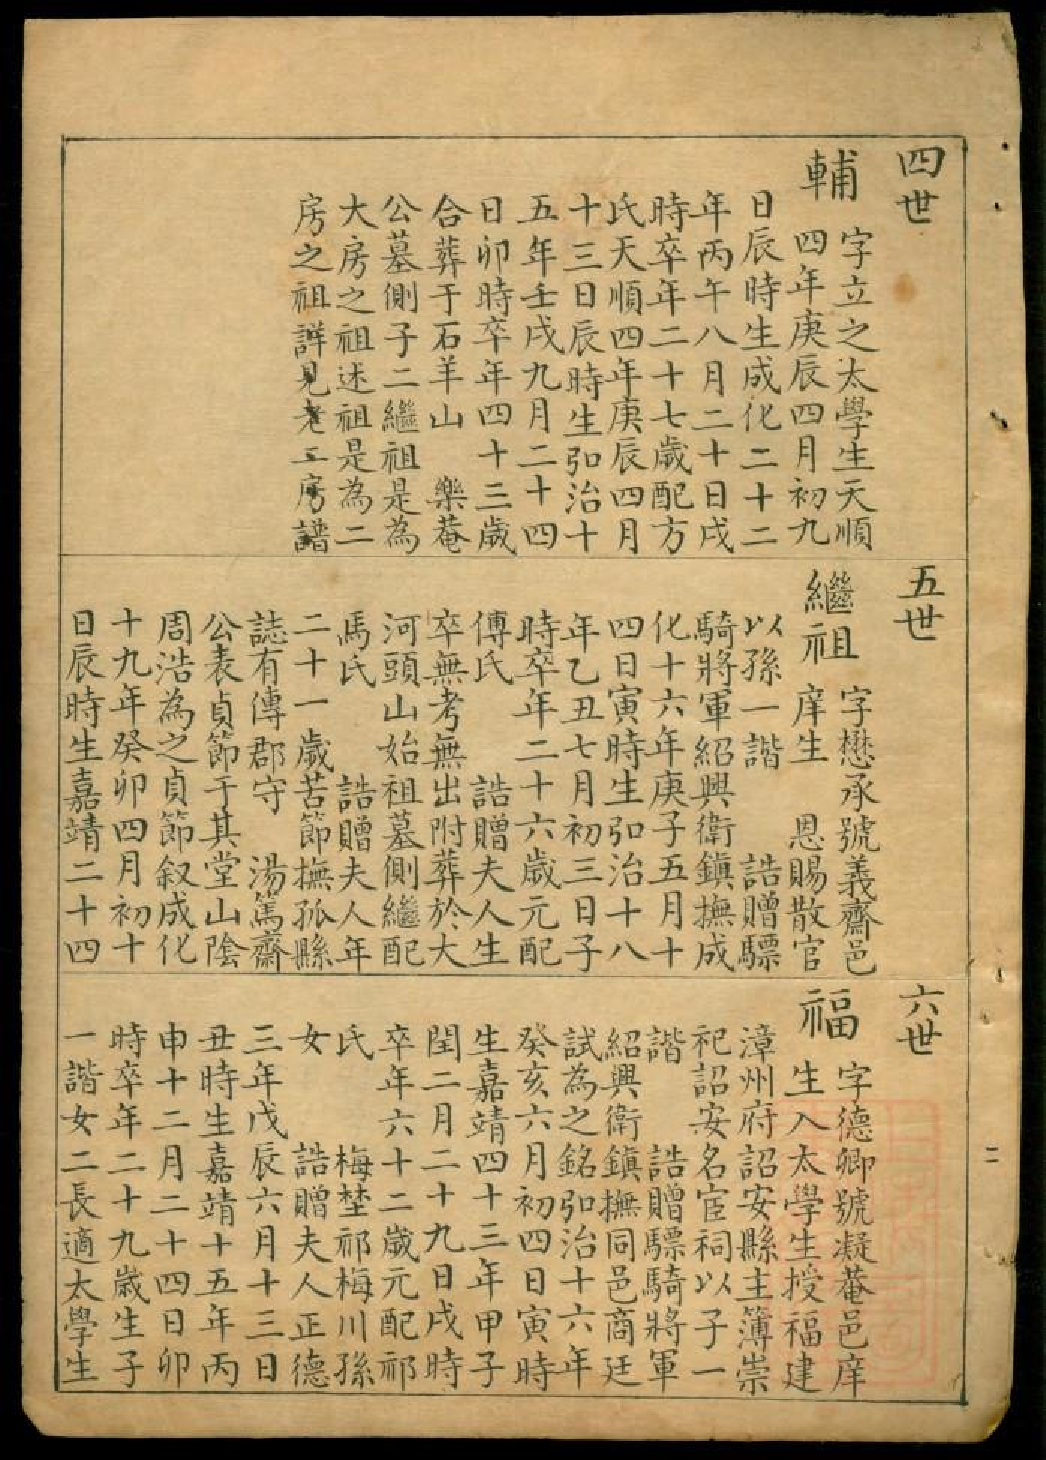 四世
輔
字立之太學生天順
四年庚辰四月初九
日辰時生成化二十二
年丙午八月二十日戌
時卒年二十七歲配方
氏天順四年庚辰四月
十三日辰時生弘治十
五年壬戌九月二十四
日卯時卒年四十三歲
合葬于石羊山 樂菴
公墓側子二繼祖是為
大房之祖述祖是為二
房之祖詳見老二房譜
五世
繼祖
字懋承號義齋邑
庠生 恩賜散官
以孫一諧 誥贈驃
騎將軍紹興衛鎮撫成
化十六年庚子五月十
四日寅時生弘治十八
年乙丑七月初三日子
時卒年二十六歲元配
傅氏 誥贈夫人生
卒無考無出附葬於大
河頭山始祖墓側繼配
馬氏 誥贈夫人年
二十一歲苦節撫孤縣
誌有傳郡守 湯篤齋
公表貞節于其堂山陰
周浩為之貞節叙成化
十九年癸卯四月初十
日辰時生嘉靖二十四
六世
福
字德卿號凝菴邑庠
生入太學生授福建
漳州府詔安縣主簿崇
祀詔安名宦祠以子一
諧 誥贈驃騎將軍
紹興衛鎮撫同邑商廷
試為之銘弘治十六年
癸亥六月初四日寅時
生嘉靖四十三年甲子
閏二月二十九日戌時
卒年六十二歲元配祁
氏 梅墅祁梅川孫
女 誥贈夫人正德
三年戊辰六月十三日
丑時生嘉靖十五年丙
申十二月二十四日卯
時卒年二十九歲生子
一諧女二長適太學生
二